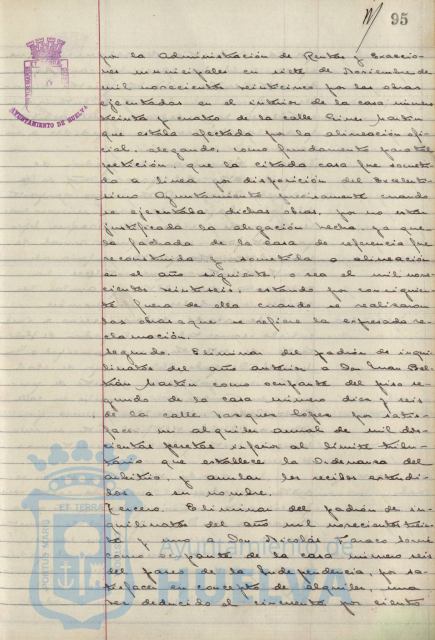 95
por la Administración de Rentas y Exaccio-
nes municipales en siete de Noviembre de
mil novecientos veinticinco por las obras
ejecutadas en el interior de la casa número
treinta y cuatro de la calle Gines Martin
que estaba afectada por la alineación ofi-
cial, alegando, como fundamento para tal
petición, que la citada casa fue someti-
da a linea por disposición del Excelentí-
simo Ayuntamiento precisamente cuando
se ejecutaba dichas obras, por no estar
justificada la obligación hecha, ya que
la fachada de la casa de referencia fue
reconstruida y sometida a alineación
en el año siguiente, o sea el mil nove-
cientos veintiseis, estando por consiguien-
te fuera de ella cuando se realizaron
las obras a que se refiere la expresada re-
clamación.
Segundo. Eliminar del padrón de inqui-
linatos del año anterior a Don Juan Bel-
trán Martín como ocupante del piso se-
gundo de la casa número diez y seis
de la calle Vazquez Lopez por satis-
facer un alquiler anual de mil dos-
cientas pesetas inferior al límite tribu-
tario que establece la Ordenanza del
arbitrio, y anular los recibos extendi-
dos a su nombre.
Tercero. Eliminar del padrón de in-
quilinatos del año mil novecientos trein-
ta y uno a Don Nicolás
como ocupante de la casa número seis
del paseo de la Independencia, por sa-
tisfacer en concepto de alquiler, una
vez deducido el cincuenta por ciento
AYUNTAMIENTO DE HUELVA
PORTUS MARIS ET TERRAE
Ayuntamiento de
HUELVA